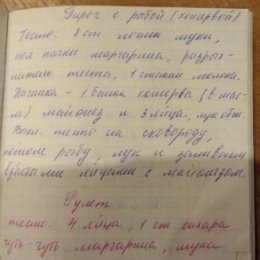 Пирог с рыбой (консервой)
Тесто: 3 ст. ложки муки,
пол пачки маргарина, разрых-
литель теста, 1 стакан молока.
Начинка - 1 банка консервы (в мас-
ле) майонез и 3 яйца, лук
тесто на сковороду,
потом рыбу, лук и заливаем
взбитыми яйцами с майонезом.
Рулет
тесто: 4 яйца, 1 ст сахара
чуть-чуть маргарина, мука